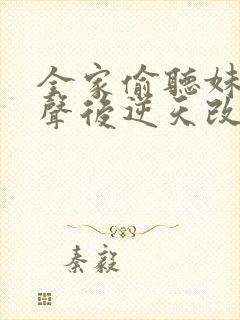 全家偷聽妹
聲後逆天改
秦毅